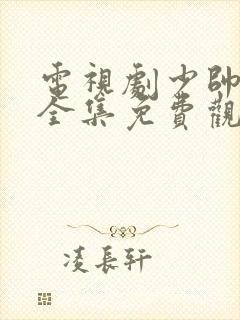 電視劇少帥
全集免費觀
凌長軒